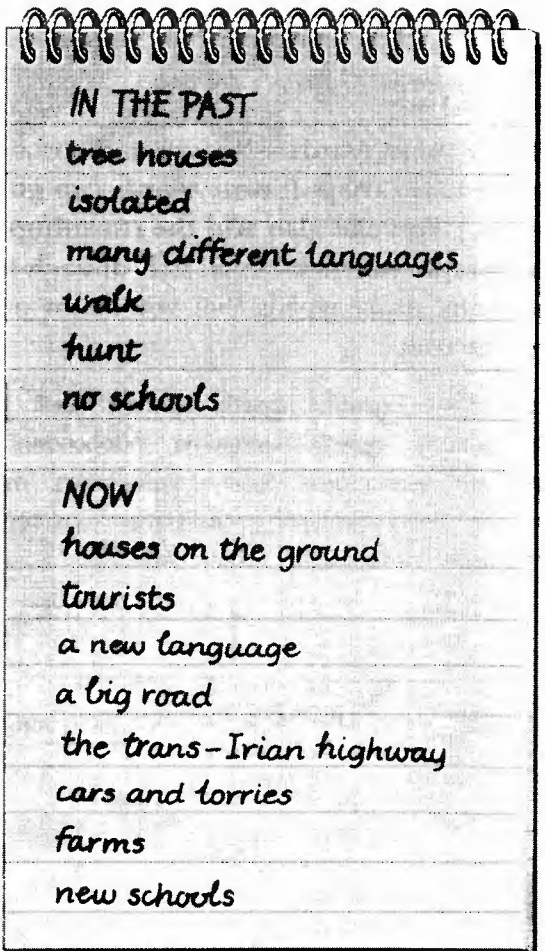 IN THE PAST
tree houses
isolated
many different languages
walk
hunt
no schools
NOW
houses on the ground
tourists
a new language
a big road
the trans-Irian highway
cars and lorries
farms
new schools